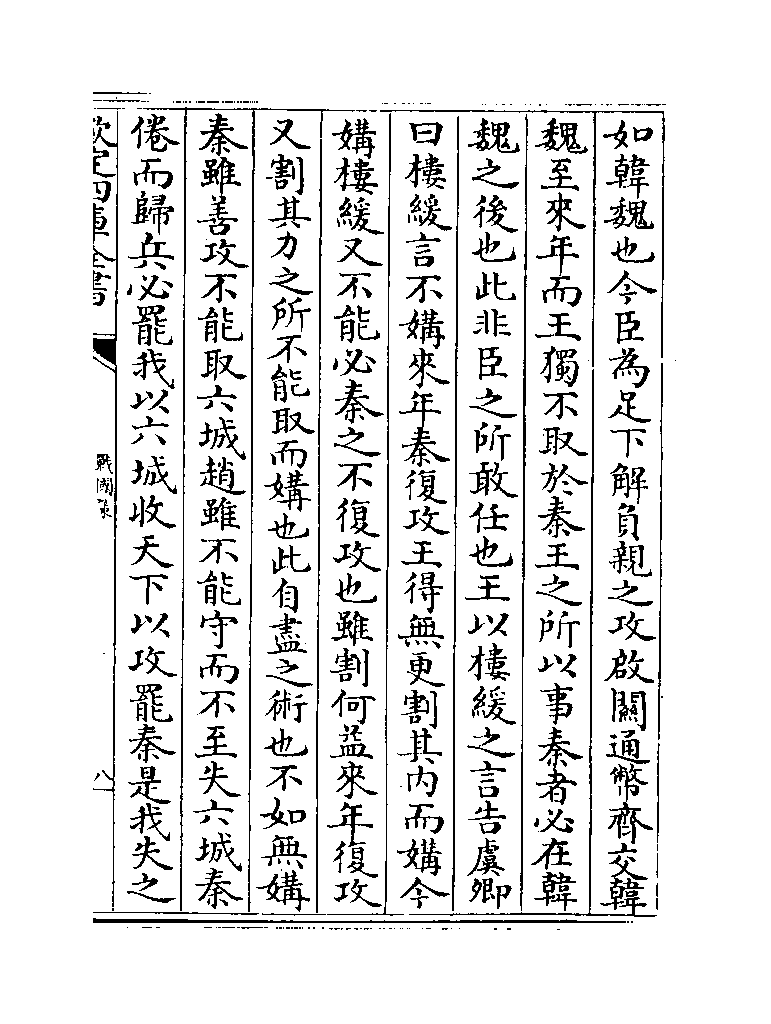 如韓魏也今臣為足下解負親之攻啟關通幣齊交韓
魏至來年而王獨不取於秦王之所以事秦者必在韓
魏之後也此非臣之所敢任也王以樓緩之言告虞卿
曰樓緩言不媾來年秦復攻王得無更割其內而媾今
媾樓緩又不能必秦之不復攻也雖割何益來年復攻
又割其力之所不能取而媾也此自盡之術也不如無媾
秦雖善攻不能取六城趙雖不能守而不至失六城秦
倦而歸兵必罷我以六城收天下以攻罷秦是我失之
欽定四庫全書
戰國策
八